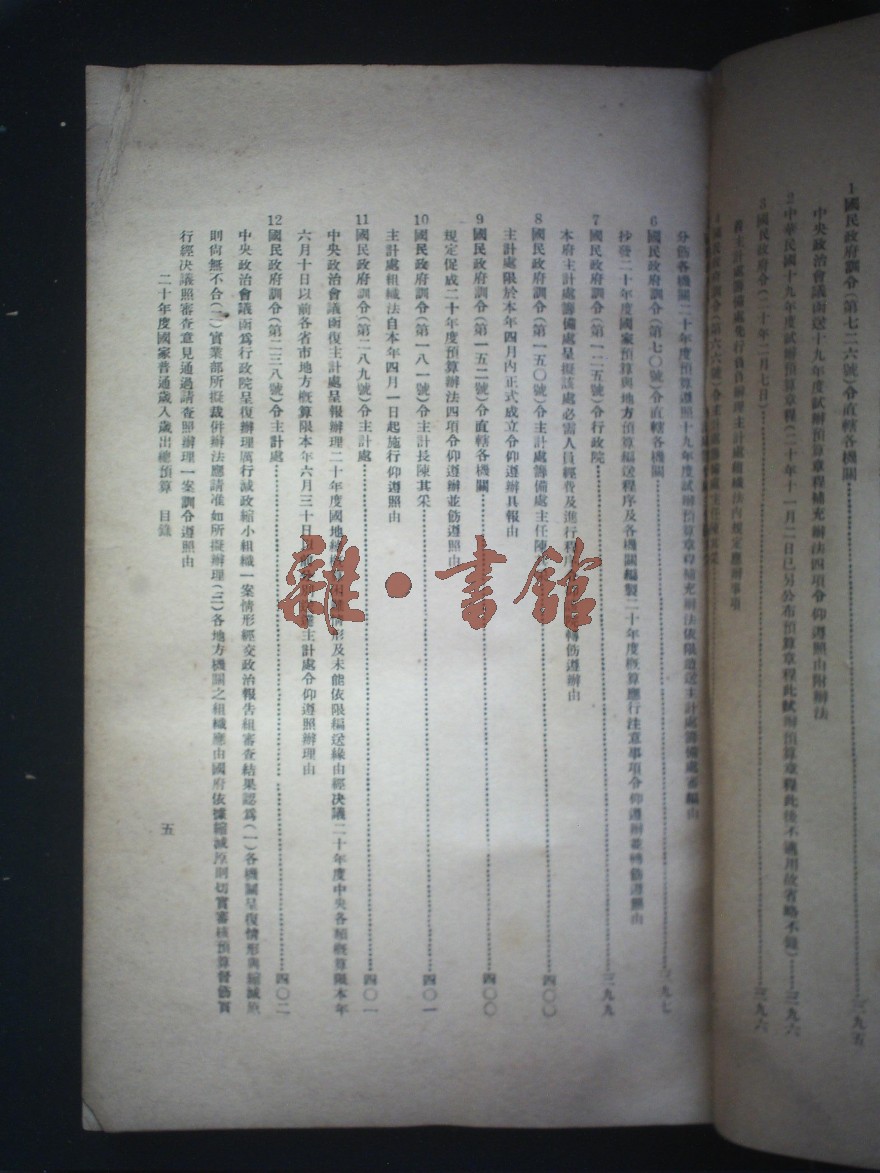 1國民政府訓令(第七二六號)令直轄各機關……三九五
中央政治會議函送十九年度試辦預算章程補充辦法四項令仰遵照由附辦法
2中華民國十九年度試辦預算章程(二十年十一月二日已另公布預算章程此試辦預算章程此後不適用故省略不錄)……三九六
3國民政府令(二十年二月七日)……三九六
主計處籌備處先行負責辦理主計處組織法內規定應辦事項
分飭各機關二十年度預算遵照十九年度試辦預算章程補充辦法依限造送主計處籌備處審編由
6國民政府訓令(第七〇號)令直轄各機關……三九七
抄發二十年度國家預算與地方預算編送程序及各機關編製二十年度概算應行注意事項令仰遵辦並轉飭遵照由
7國民政府訓令(第一二五號)令行政院……三九九
本府主計處籌備處呈擬該處必需人員經費及進行程序 轉飭遵辦由
8國民政府訓令(第一五〇號)令主計處籌備處主任陳……四〇〇
主計處限於本年四月內正式成立令仰遵辦具報由
9國民政府訓令(第一五二號)令直轄各機關……四〇〇
規定促成二十年度預算辦法四項令仰遵辦並飭遵照由
10國民政府訓令(第一八一號)令主計長陳其采……四〇一
主計處組織法自本年四月一日起施行仰遵照由
11國民政府訓令(第二八九號)令主計處……四〇一
中央政治會議函復主計處呈報辦理二十年度國地 情形及未能依限編送緣由經決議二十年度中央各類概算限本年
六月十日以前各省市地方概算限本年六月三十日以 主計處令仰遵照辦理由
12國民政府訓令(第二三八號)令主計處……四〇二
中央政治會議函爲行政院呈復辦理厲行減政縮小組織一案情形經交政治報告組審查結果認爲(一)各機關呈復情形與縮減原
則尙無不合(二)實業部所擬裁併辦法應請准如所擬辦理(三)各地方機關之組織應由國府依據縮減原則切實審核預算督飭實
行經決議照審查意見通過請查照辦理一案訓令遵照由
二十年度國家普通歲入歲出總預算 目錄
五
雜·書館